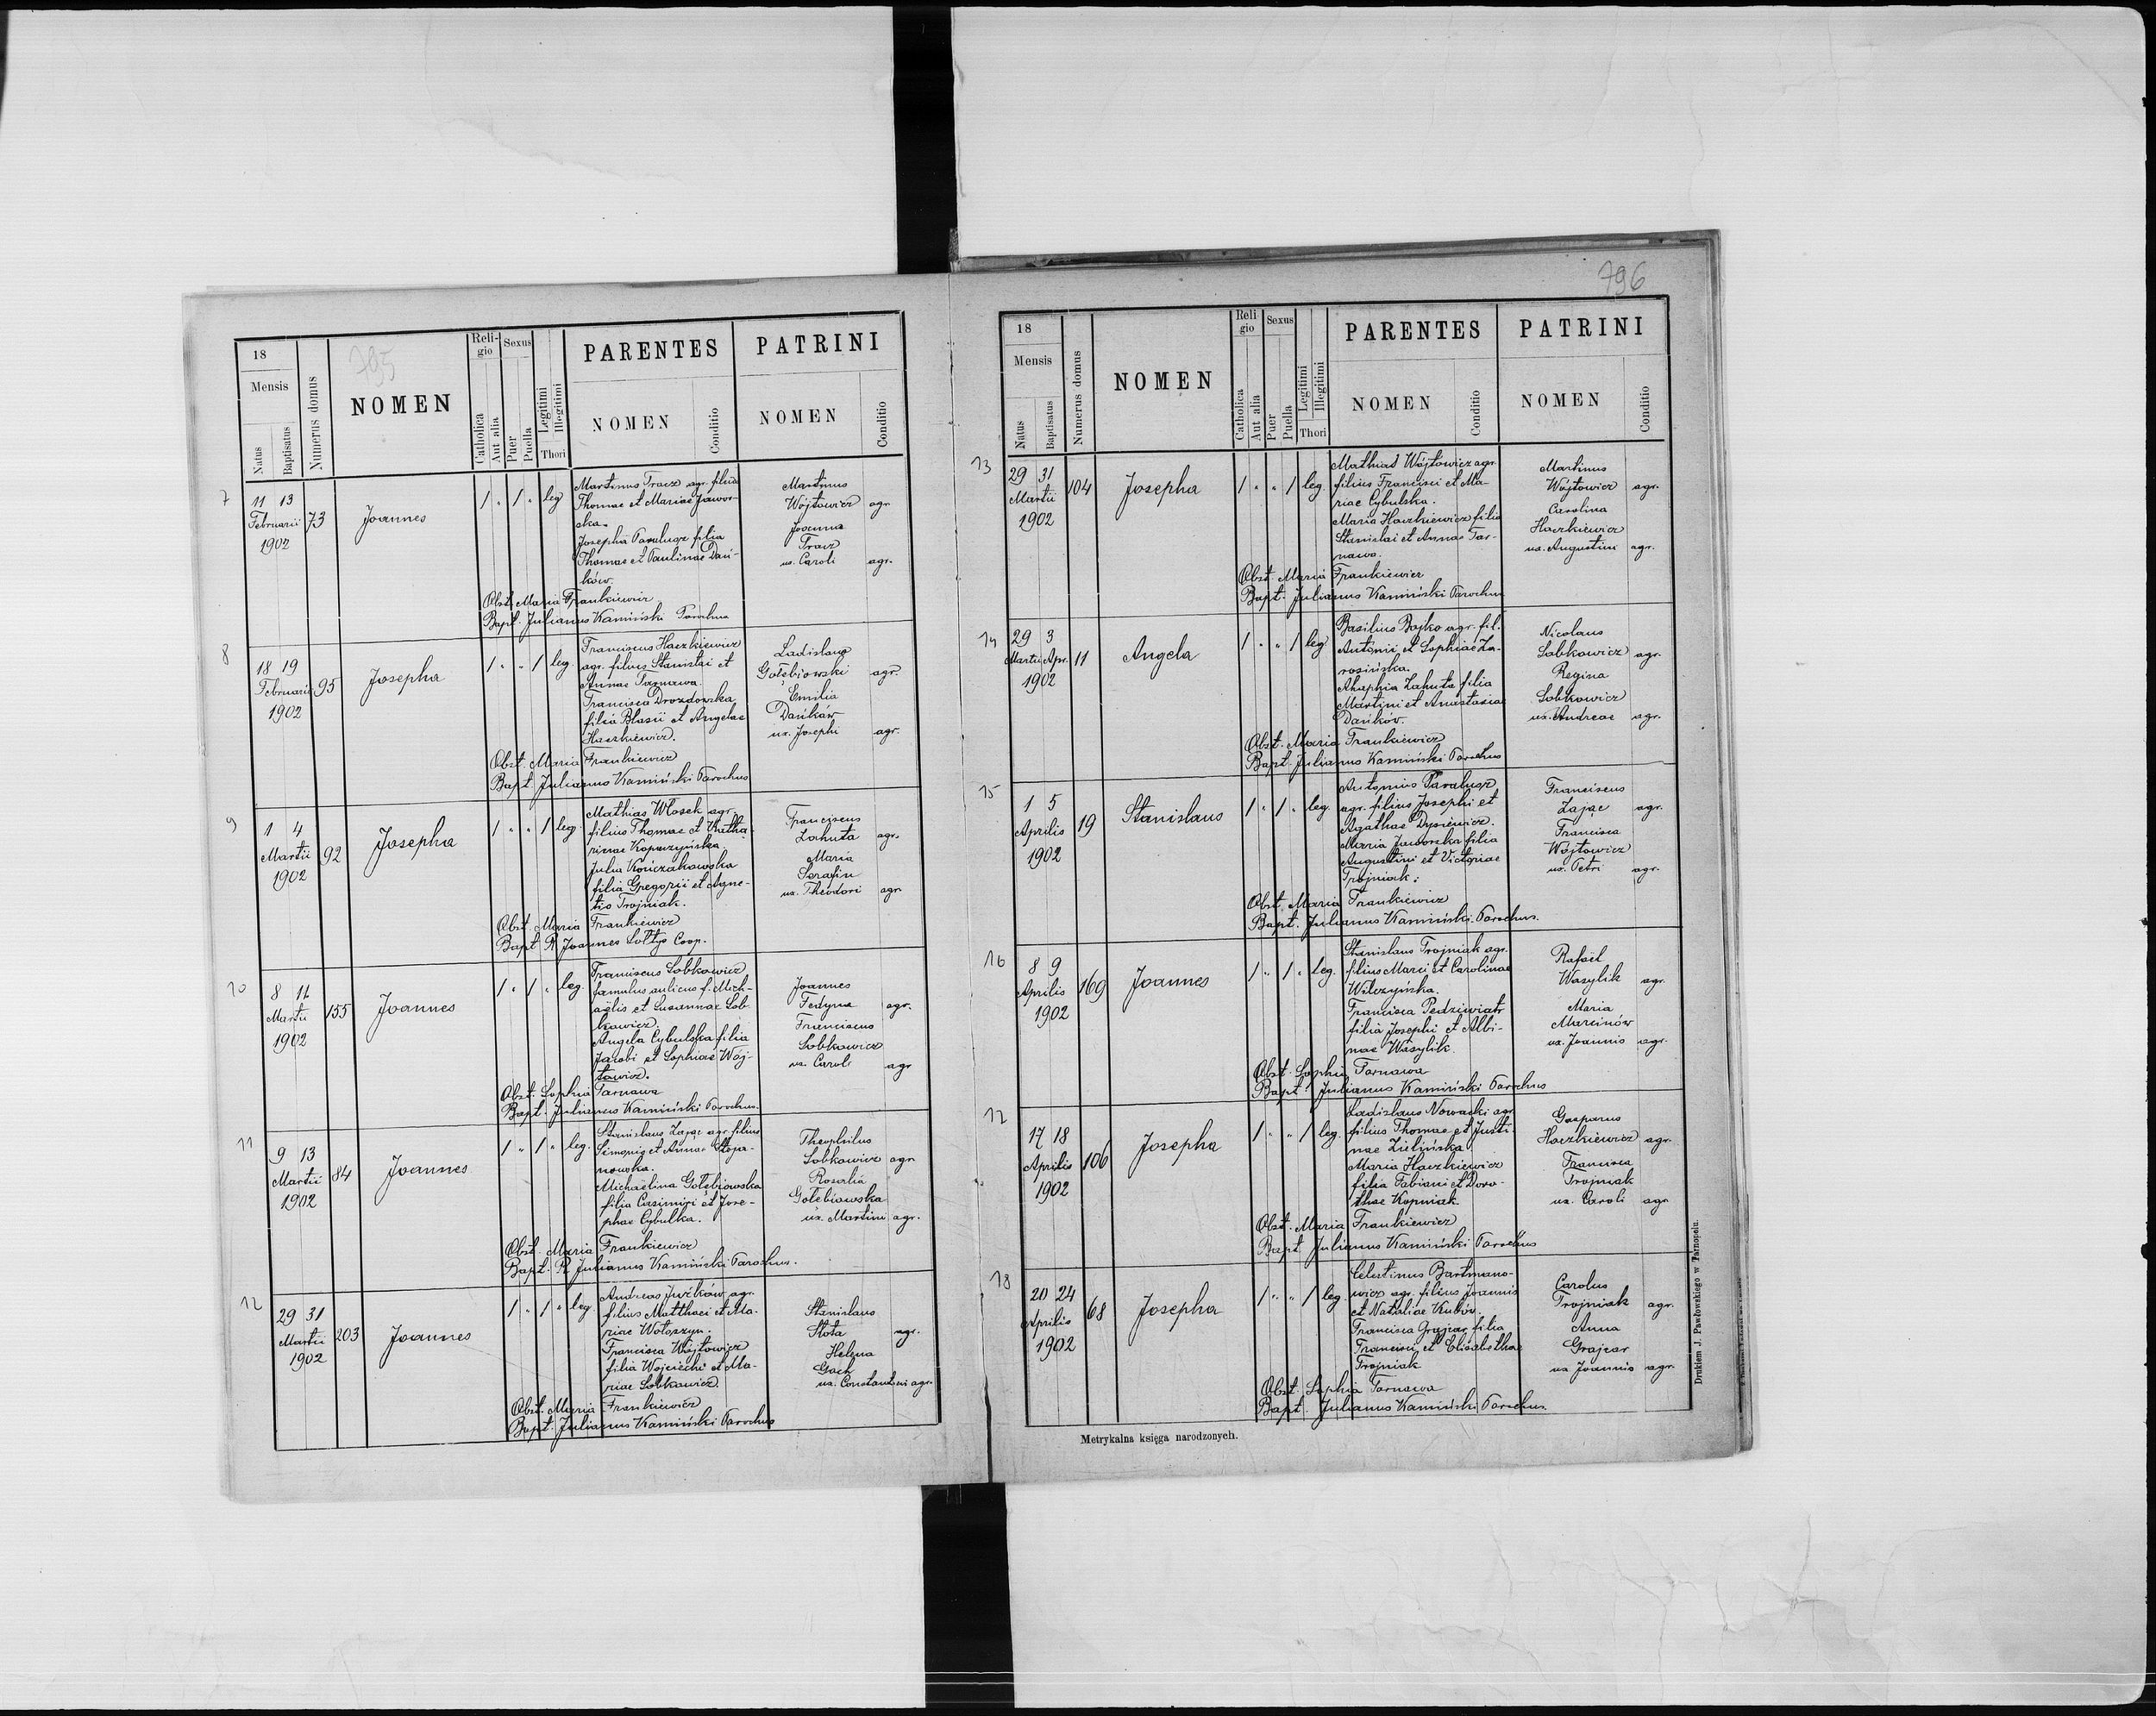 795
18
Mensis
Natus
Baptisatus
Numerus domus
NOMEN
Reli-
gio
Catholica
Aut alia
Sexus
Puer
Puella
Legitimi
Illegitimi
Thori
PARENTES
NOMEN
Conditio
PATRINI
NOMEN
Conditio
7
11 13
Februarii
1902
73
Joannes
1 " 1 " leg
Martinus Tracz agr. filius
Thomae et Mariae Jawor-
ska.
Josepha Paralusz filia
Thomae et Paulinae Dań-
ków.
Martinus
Wójtowicz agr
Joanna
Tracz
ux. Caroli agr.
Obst. Maria Frankiewicz
Bapt. Julianus Kamiński Parochus
8
18 19
Februarii
1902
95
Josepha
1 " " 1 leg.
Franciscus Haczkiewicz
agr. filius Stanislai et
Annae Tarnawa.
Francisca Drozdowska
filia Blasii et Angelae
Haczkiewicz.
Ladislaus
Gołębiowski agr.
Emilia
Dańków
ux. Josephi agr.
Obst. Maria Frankiewicz
Bapt. Julianus Kamiński Parochus
9
1 4
Martii
1902
92
Josepha
1 " " 1 leg.
Mathias Włosek agr.
filius Thomae et Katha-
rinae Kopaczyńska.
Julia Kończakowska
filia Gregorii et Agne-
tis Trojniak.
Franciscus
Lahuta agr.
Maria
Serafin
ux. Theodori agr
Obst. Maria Frankiewicz
Bapt. R. Joannes Sołtys Coop.
10
8 11
Martii
1902
155
Joannes
1 " 1 " leg.
Franciscus Sobkowicz
famulus aulicus f. Mich-
aëlis et Susannae Sob-
kowicz.
Angela Cybulska filia
Jacobi et Sophiae Wój-
towicz.
Joannes
Fedyna agr.
Franciscus
Sobkowicz
ux. Caroli agr
Obst. Sophia Tarnawa
Bapt. Julianus Kamiński Parochus.
11
9 13
Martii
1902
84
Joannes
1 " 1 " leg.
Stanislaus Zając agr. filius
Simonis et Annae
nowska.
Michaëlina Gołębiowska
filia Casimiri et Jose-
phae Cybulka.
Theophilus
Sobkowicz agr
Rosalia
Gołębiowska
ux. Martini agr.
Obst. Maria Frankiewicz
Bapt. R. Julianus Kamiński Parochus.
12
29 31
Martii
1902
203
Joannes
1 " 1 " leg.
Andreas Juzków agr.
filius Matthaei et Ma-
riae Wołoszyn.
Francisca Wójtowicz
filia Wojciechi et Ma-
riae Sobkowicz.
Stanislaus
Słota agr.
Helena
Gach
ux. Constantini agr.
Obst. Maria Frankiewicz
Bapt. Julianus Kamiński Parochus
796
18
Mensis
Natus
Baptisatus
Numerus domus
NOMEN
Reli-
gio
Catholica
Aut alia
Sexus
Puer
Puella
Legitimi
Illegitimi
Thori
PARENTES
NOMEN
Conditio
PATRINI
NOMEN
Conditio
13
29 31
Martii
1902
104
Josepha
1 " " 1 leg.
Mathias Wójtowicz agr.
filius Francisci et Ma-
riae Cybulska.
Maria Haczkiewicz filia
Stanislai et Annae Tar-
nawa.
Martinus
Wójtowicz agr.
Carolina
Haczkiewicz
ux. Augustini agr.
Obst. Maria Frankiewicz
Bapt. Julianus Kamiński Parochus
14
29 3
Martii Apr.
1902
11
Angela
1 " " 1 leg
Basilius Bojko agr. fil.
Antonii et Sophiae Za-
rosińska.
Ahaphia Lahuta filia
Martini et Anastasiae
Dańków.
Nicolaus
Sobkowicz agr.
Regina
Sobkowicz
ux. Andreae agr.
Obst. Maria Frankiewicz
Bapt. Julianus Kamiński Parochus
15
1 5
Aprilis
1902
19
Stanislaus
1 " 1 " leg
Antonius Paralusz
agr. filius Josephi et
Agathae Dysiewicz.
Maria Jaworska filia
Augustini et Victoriae
Trojniak.
Franciscus
Zając agr.
Francisca
Wójtowicz
ux. Petri agr.
Obst. Maria Frankiewicz
Bapt. Julianus Kamiński Parochus.
16
8 9
Aprilis
1902
169
Joannes
1 " 1 " leg.
Stanislaus Trojniak agr.
filius Marci et Carolinae
Wilczyńska.
Francisca Pedziwiatr
filia Josephi et Albi-
nae Wasylik.
Rafaël
Wasylik agr.
Maria
Marcinów
ux. Joannis agr.
Obst. Sophia Tarnawa
Bapt. Julianus Kamiński Parochus
17
17 18
Aprilis
1902
106
Josepha
1 " " 1 leg.
Ladislaus Nowacki agr.
filius Thomae et Justi-
nae Zielińska.
Maria Haczkiewicz
filia Fabiani et Doro-
theae Kopniak.
Gasparus
Haczkiewicz agr.
Francisca
Trojniak
ux. Caroli agr
Obst. Maria Frankiewicz
Bapt. Julianus Kamiński Parochus
18
20 24
Aprilis
1902
68
Josepha
1 " " 1 leg.
Celestinus Bartmano-
wicz agr. filius Joannis
et Nataliae Kubów.
Francisca Grajcar filia
Francisci et Elisabethae
Trojniak
Carolus
Trojniak agr.
Anna
Grajcar
ux Joannis agr.
Obst. Sophia Tarnawa
Bapt. Julianus Kamiński Parochus.
Metrykalna księga narodzonych.
Drukiem J. Pawłowskiego w Tarnopolu.